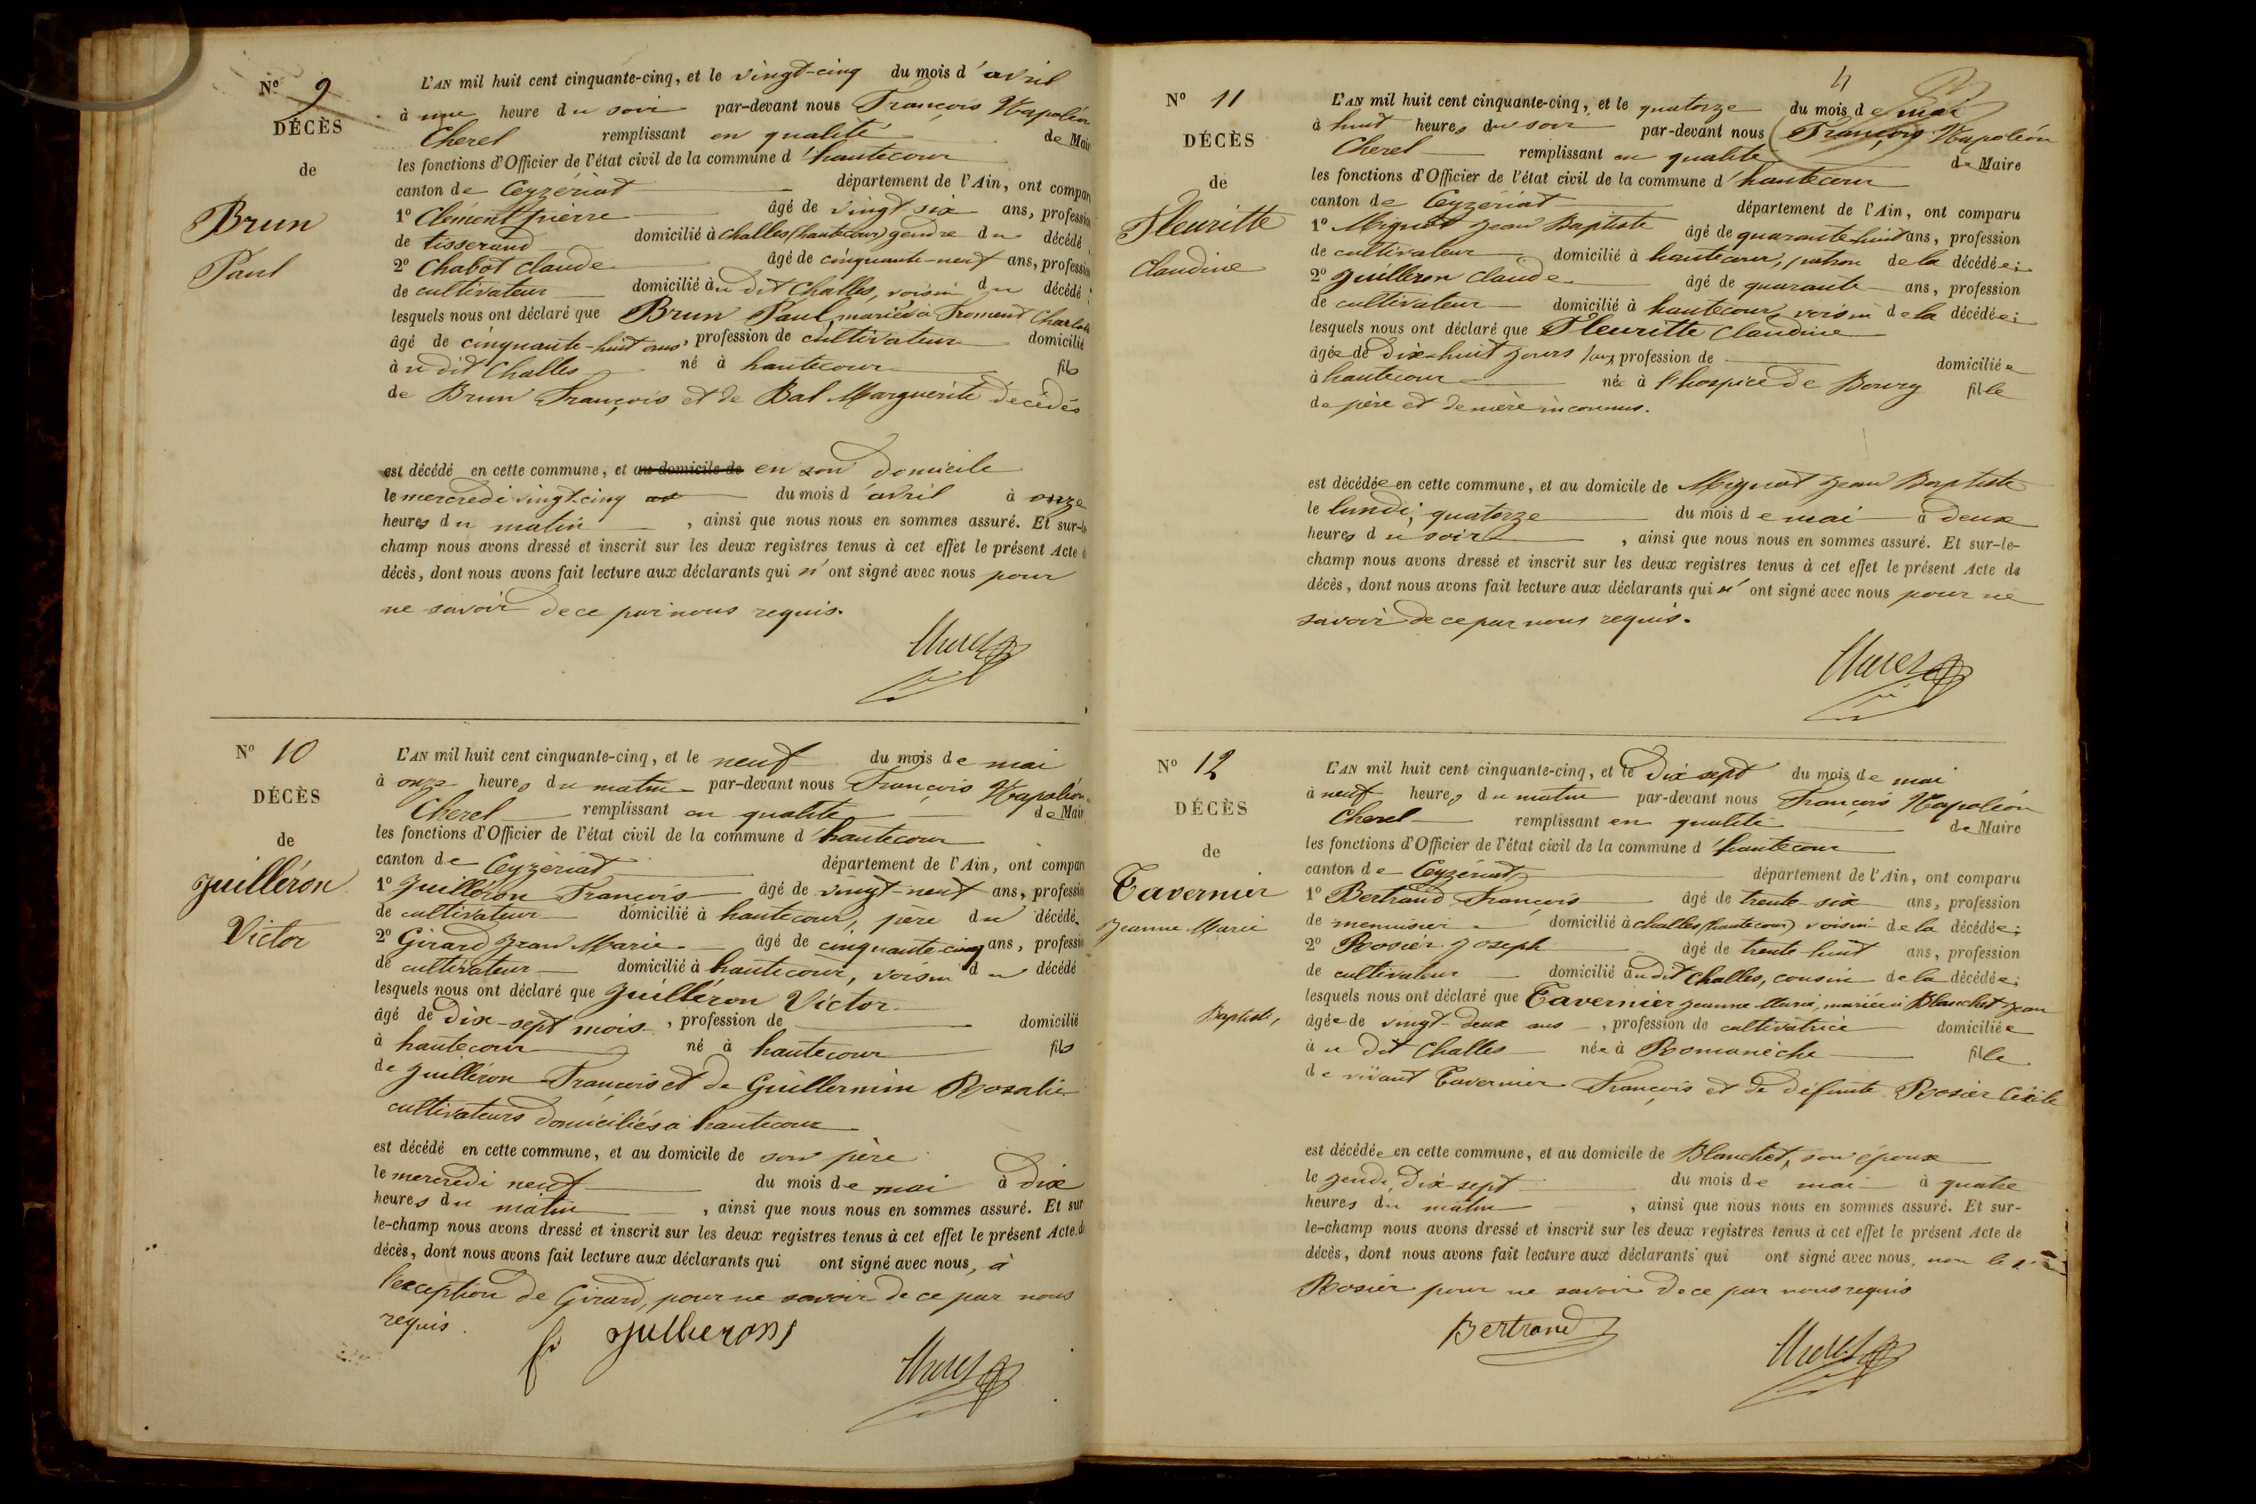 Nº 9
DÉCÈS
de
Brun
Paul
L'AN mil huit cent cinquante-cinq, et le vingt-cinq du mois d'avril
à une heure du soir par-devant nous François Napoléon
Cherel remplissant en qualité de Mair
les fonctions d'Officier de l'état civil de la commune d'hautecour
canton de Ceyzériat département de l'Ain, ont compar
1º Clément pierre âgé de vingt six ans, profession
de tisserand domicilié à Challes (hautecour) gendre du décédé
2º Chabot Claude âgé de cinquante-neuf ans, profession
de cultivateur domicilié àu dit Challes, voisin du décédé ;
lesquels nous ont déclaré que Brun Paul, marié à Froment Charlotte
âgé de cinquante-huit ans, profession de cultivateur domicilié
àu dit Challes né à hautecour fils
de Brun François et de Bal Marguerite décédés
est décédé en cette commune, et au domicile de en son domicile
le mercredi vingt-cinq du mois d'avril à onze
heures du matin, ainsi que nous nous en sommes assuré. Et sur-le
champ nous avons dressé et inscrit sur les deux registres tenus à cet effet le présent Acte d
décès, dont nous avons fait lecture aux déclarants qui n'ont signé avec nous pour
ne savoir de ce par nous requis.
Cherel
Nº 10
DÉCÈS
de
Juilléron
Victor
L'AN mil huit cent cinquante-cinq, et le neuf du mois de mai
à onze heures du matin par-devant nous François Napoléon
Cherel remplissant en qualité de Mair
les fonctions d'Officier de l'état civil de la commune d'hautecour
canton de Ceyzériat département de l'Ain, ont compar
1º Juilléron François âgé de vingt-neuf ans, profession
de cultivateur domicilié à hautecour, père du décédé
2º Girard Jean Marie âgé de cinquante-cinq ans, profession
de cultivateur domicilié à hautecour, voisin du décédé
lesquels nous ont déclaré que Juilléron Victor
âgé de dix-sept mois, profession de domicilié
à hautecour né à hautecour fils
de Juilléron François et de Guillermin Rosalie
cultivateurs domiciliés à hautecour
est décédé en cette commune, et au domicile de son père
le mercredi neuf du mois de mai à dix
heures du matin, ainsi que nous nous en sommes assuré. Et sur
le-champ nous avons dressé et inscrit sur les deux registres tenus à cet effet le présent Acte de
décès, dont nous avons fait lecture aux déclarants qui ont signé avec nous, à
l'exception de Girard, pour ne savoir de ce par nous
requis.
Cherel
4
Nº 11
DÉCÈS
de
Fleuritte
Claudine
L'AN mil huit cent cinquante-cinq, et le quatorze du mois de mai
à huit heures du soir par-devant nous François Napoléon
Cherel remplissant en qualité de Maire
les fonctions d'Officier de l'état civil de la commune d'hautecour
canton de Ceyzériat département de l'Ain, ont comparu
1º Mignot Jean Baptiste âgé de quarante huit ans, profession
de cultivateur domicilié à hautecour, patron de la décédée;
2º Juilleron Claude âgé de quarante ans, profession
de cultivateur domicilié à hautecour, voisin de la décédée;
lesquels nous ont déclaré que Fleuritte Claudine
âgée de dix-huit jours sans profession de domiciliée
à hautecour née à l'hospice de Bourg fille
de père et de mère inconnus.
est décédée en cette commune, et au domicile de Mignot Jean Baptiste
le lundi, quatorze du mois de mai à deux
heures du soir, ainsi que nous nous en sommes assuré. Et sur-le-
champ nous avons dressé et inscrit sur les deux registres tenus à cet effet le présent Acte de
décès, dont nous avons fait lecture aux déclarants qui n'ont signé avec nous pour ne
savoir de ce par nous requis.
Cherel
Nº 12
DÉCÈS
de
Tavernier
Jeanne Marie
L'AN mil huit cent cinquante-cinq, et le dix sept du mois de mai
à neuf heures du matin par-devant nous François Napoléon
Cherel remplissant en qualité de Maire
les fonctions d'Officier de l'état civil de la commune d'hautecour
canton de Ceyzériat département de l'Ain, ont comparu
1º Bertrand François âgé de trente-six ans, profession
de menuisier domicilié à challes (hautecour) voisin de la décédée;
2º Rosier Joseph âgé de trente-huit ans, profession
de cultivateur domicilié àudit Challes, cousin de la décédée;
lesquels nous ont déclaré que Tavernier Jeanne Marie, mariée à Blanchet Jean
Baptiste, âgée de vingt-deux ans, profession de cultivatrice domiciliée
àu dit Challes née à Romanèche fille
de vivant Tavernier François et de défunte Rosier Cécile
est décédée en cette commune, et au domicile de Blanchet, son époux
le jeudi, dix-sept du mois de mai à quatre
heures du matin, ainsi que nous nous en sommes assuré. Et sur-
le-champ nous avons dressé et inscrit sur les deux registres tenus à cet effet le présent Acte de
décès, dont nous avons fait lecture aux déclarants qui ont signé avec nous, non le
Rosier pour ne savoir de ce par nous requis
Bertrand
Cherel